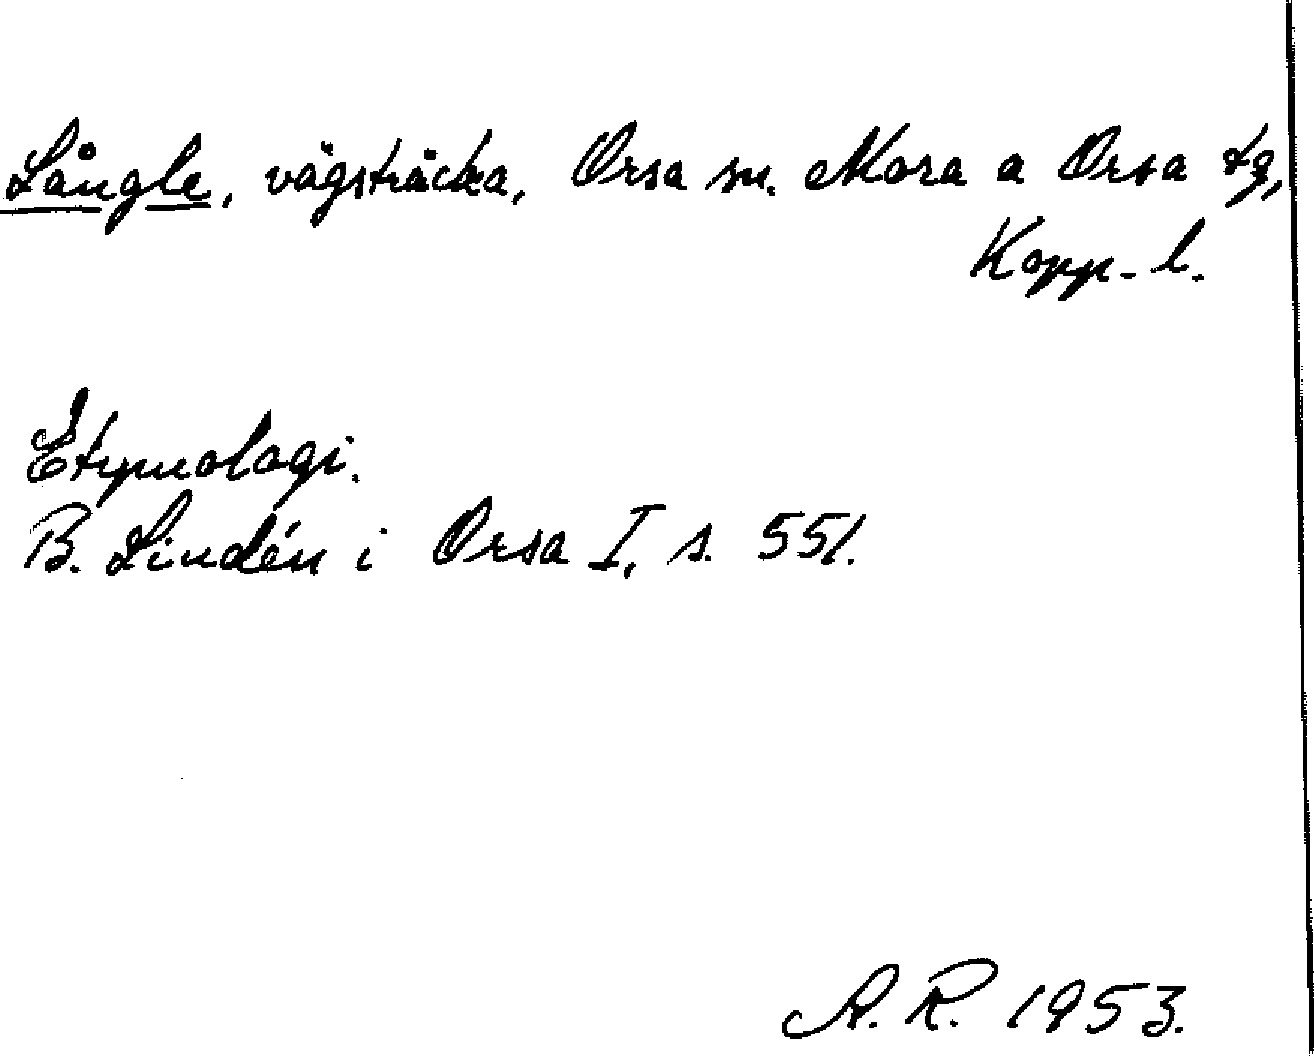 Långle, vägsträcka, Orsa sn. Mora a Orsa tg,
Kopp. l.
Etymologi.
B. Lindén i Orsa I, s. 551.
A. R. 1953.